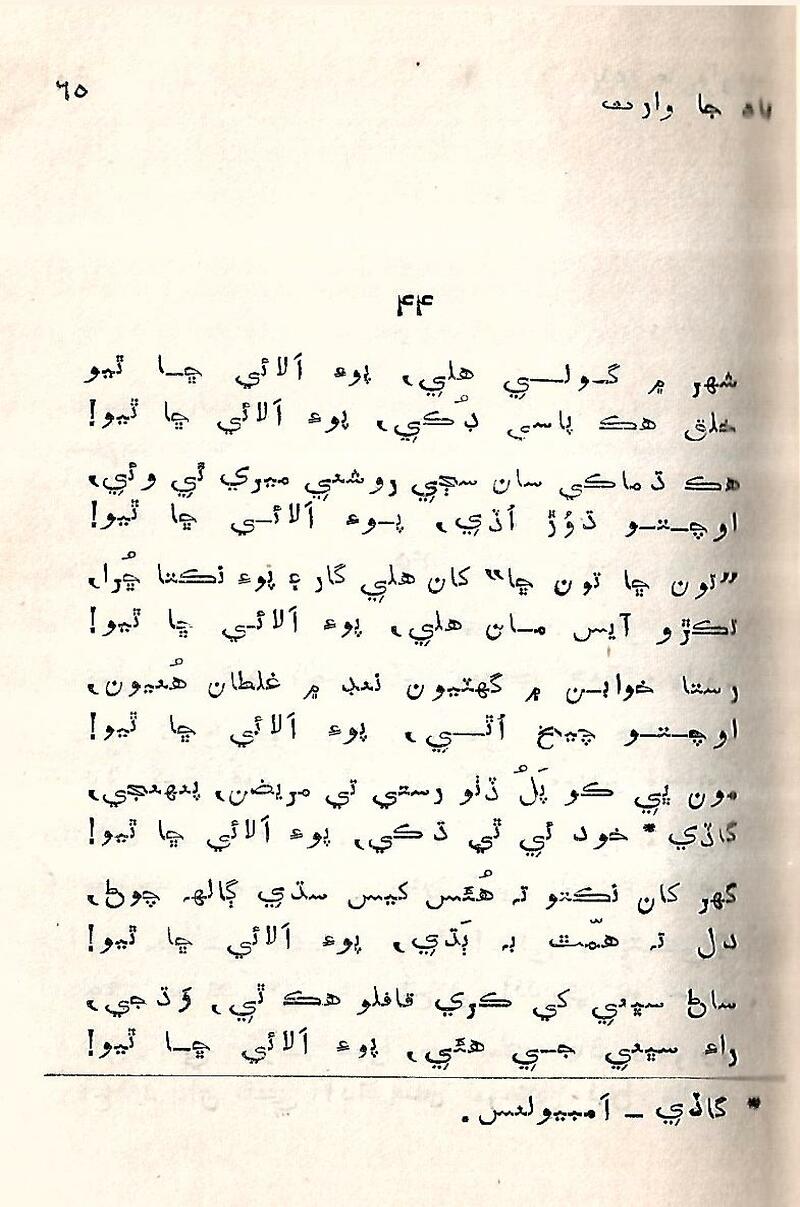 جا وارث
٦٥
۴۴
شهر ۾ گولي هلي، پوءِ اَلائي ڇا ٿيو
خلق هڪ پاسي ڊُڪي، پوءِ اَلائي ڇا ٿيو!
هڪ ڌماڪي سان سڄي روشني ميري ٿي وئي،
اوچتو ڌُوڙ اُڏي، پوءِ اَلائي ڇا ٿيو!
”تون ڇا تون ڇا“ کان هلي گار ۽ پوءِ نڪتا ڇُرا،
تڪڙو آيس مان هلي، پوءِ اَلائي ڇا ٿيو!
رستا خوابن ۾ گهٽيون ننڊ ۾ غلطان هُيون،
اوچتو چيخ اُٿي، پوءِ اَلائي ڇا ٿيو!
مون ڀي ڪو پَلُ ڏٺو رستي تي مريضن، پنهنجي،
گاڏي* خود ئي ٿي ڌڪي، پوءِ اَلائي ڇا ٿيو!
گهر کان نڪتو تہ هُئس کيس سڌي ڳالهہ چوڻ،
دل تہ همّت بہ ٻَڌي، پوءِ اَلائي ڇا ٿيو!
ساڻ سڀني کي ڪري قافلو هڪ ٿي، وَڌجي،
راءِ سڀني جي هئي، پوءِ اَلائي ڇا ٿيو!
* گاڏي – اَمبيولنس.